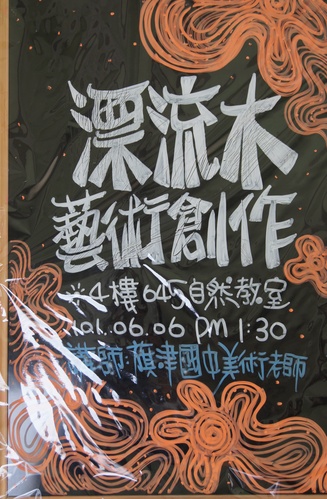 漂流木
藝術創作
※4樓645自然教室
101.06.06 PM 1:30
講師:旗津國中美術老師